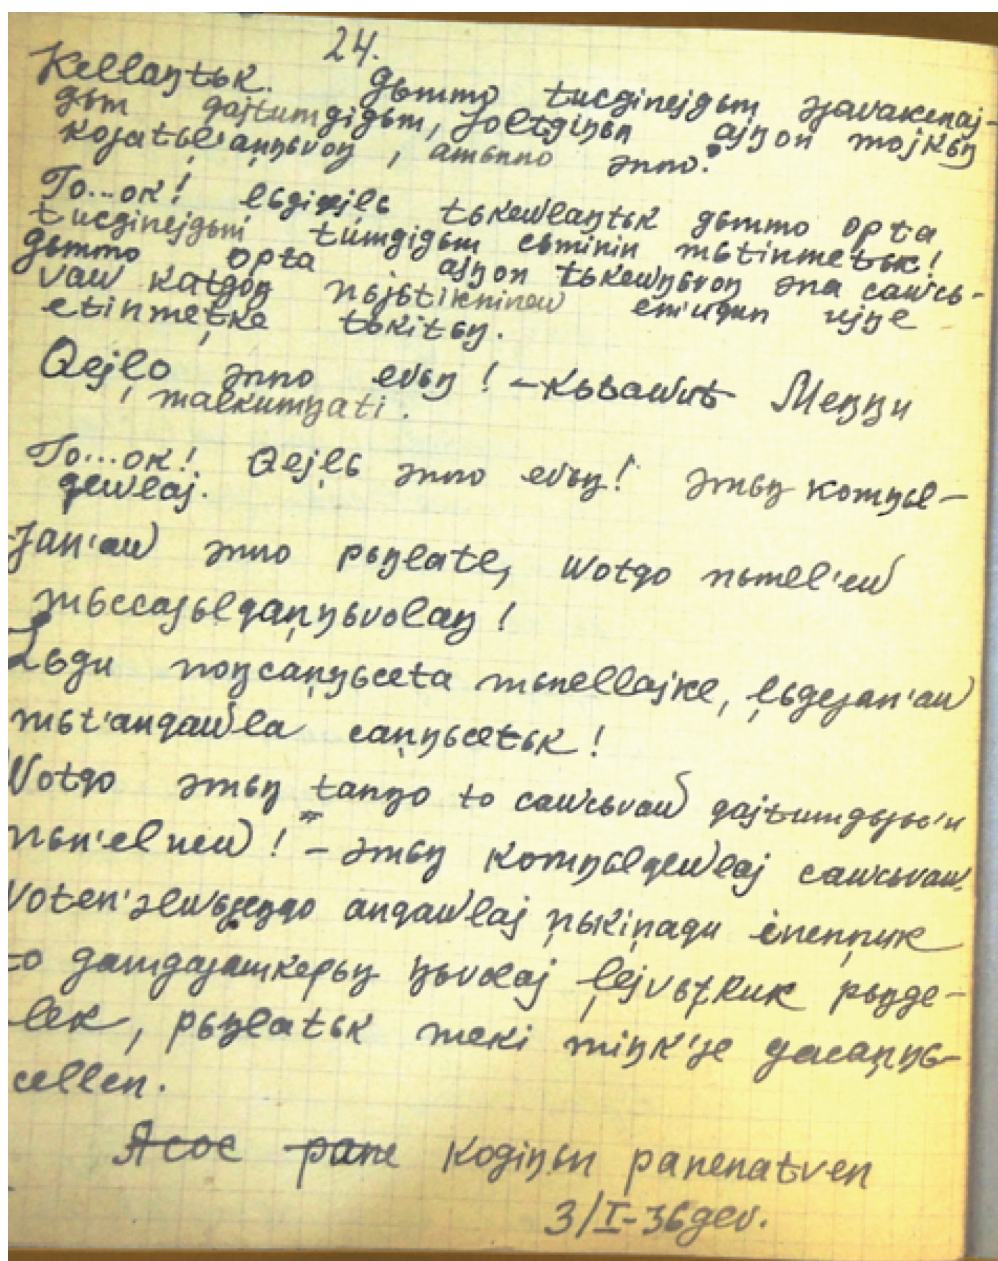 24.
Kellaŋtьk. gьmmo tucginejgьm ajavakenaj-
gьm gajtumgigьm, joltgiŋьn ajŋon mojkьŋ
kojatьl'aŋŋьvoŋ, amьnno ənno.
To...ok! tьkewlaŋtьk gьmmo opta
tucginejgьm tumgigьm cьminin mьtinmetьk!
gьmmo opta ajŋon tьkewŋьvoŋ əna cawcь-
vaw em'uqun ujŋe
etinmeţke tьkitьŋ.
Qejlo ənno evьŋ! – Meŋŋu
malkumŋati.
To...ok! Qejļь ənno evьŋ! əmьŋ komŋьl-
qewlaj.
Jan'aw ənno pьŋlate, wotqo nьmel'ew
mьccajьlqaŋŋьvolaŋ!
Lьgu noŋcaŋŋьceta mьnellajke, ļьgejan'aw
mьt'anqawla caŋŋьcetьk!
Wotqo əmьŋ tanŋo to cawcьvaw qajtumgьjьc'n
nьn'elnew! – əmьŋ komŋьlqewlaj cawcьvaw.
anqawlaj ņьkiņaqu ineņņuk
to gamgajamkepьŋ ŋьvolaj pьŋge-
lek, pьŋlatьk meki miŋk'je gacaŋŋь-
cellen.
Acoc pane Kogiŋьn panenatven
3/I-36gev.